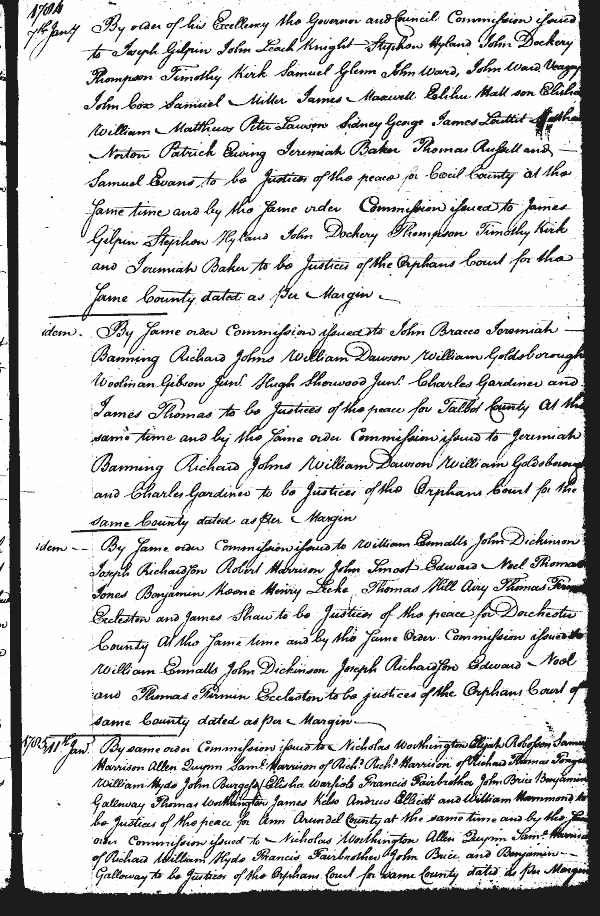 1784
7th Jany By order of his Excellency the Governor and Council Commission issued
to Joseph Gilpin John Leach Knight Stephen Hyland John Dockery
Thompson Timothy Kirk Samuel Glenn John Ward, John Ward Veazey
John Cox Samuel Miller James Maxwell Elihu Hall son Elisha
William Matthews Peter Lawson Sidney George James Louttit
Norton Patrick Ewing Jeremiah Baker Thomas Russell and
Samuel Evans to be Justices of the peace for Cecil County at the
same time and by the same order Commission issued to James
Gilpin Stephen Hyland John Dockery Thompson Timothy Kirk
and Jeremiah Baker to be Justices of the Orphans Court for the
same County dated as Per Margin
idem. By same order Commission issued to John Bracco Jeremiah
Banning Richard Johns William Dawson William Goldsborough
Woolman Gibson Junr. Hugh Sherwood Junr. Charles Gardiner and
James Thomas to be Justices of the peace for Talbot County At the
same time and by the same order Commission issued to Jeremiah
Banning Richard Johns William Dawson William Goldsborough
and Charles Gardiner to be Justices of the Orphans Court for the
same County dated as Per Margin
idem By same order Commission issued to William Ennalls John Dickinson
Joseph Richardson Robert Harrison John Smoot Edward Noel Thomas
Jones Benjamin Keene Henry Hill Airy Thomas Firmin
Eccleston and James Shaw to be Justices of the peace for Dorchester
County At the same time and by the same Order Commission issued to
William Ennalls John Dickinson Joseph Richardson Edward Noel
and Thomas Firmin Eccleston to be justices of the Orphans Court of
same County dated as Per Margin.
11th Jany By same order Commission issued to Nicholas Worthington Elijah Robosson Samuel
Harrison Allen Quynn Saml. Harrison of Richd. Richd. Harrison of Richard Thomas
William Hyde John Burgess Elisha Francis Fairbrother John Brice Benjamin
Galloway Thomas Worthington James Andrew Ellicott and William Hammond to
be Justices of the peace for Ann Arundel County at the same time and by the same
order Commission issued to Nicholas Worthington Allen Quynn Saml. Harrison
of Richard William Hyde Francis Fairbrother John Brice and Benjamin
Galloway to be Justices of the Orphans Court for same County dated as Per Margin